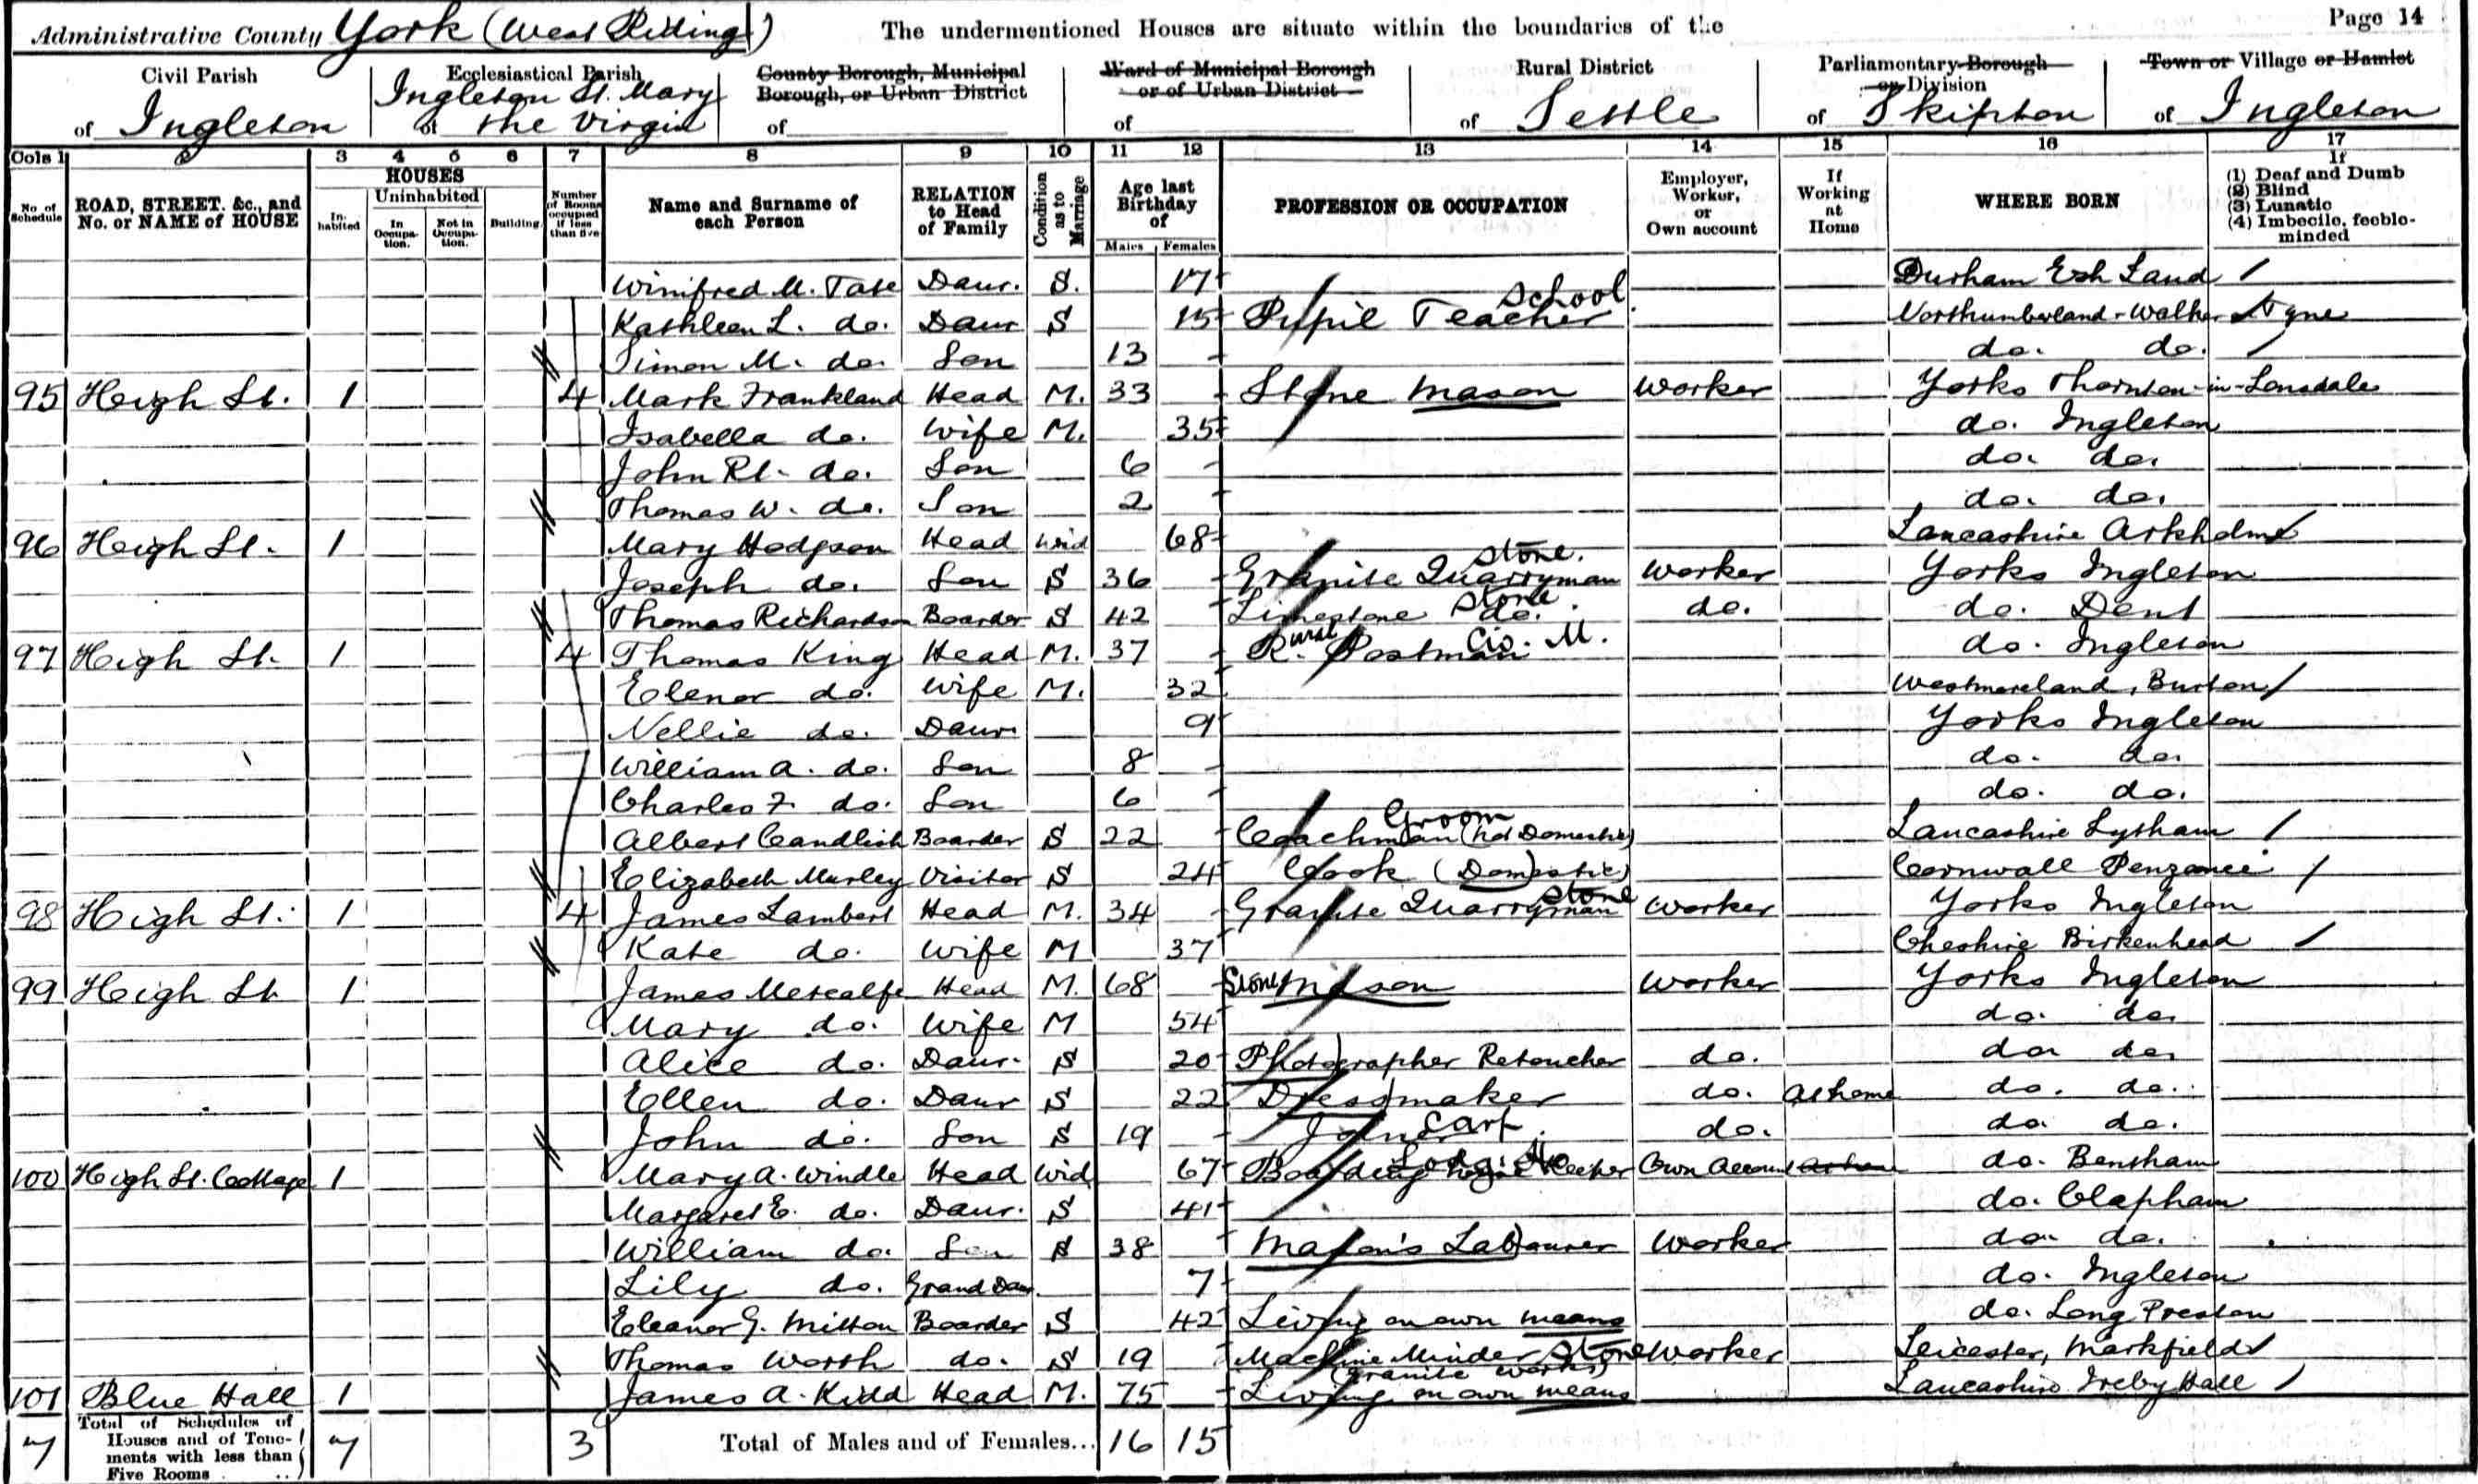 Page 14
Administrative County York (West Riding) The undermentioned Houses are situate within the boundaries of the
Civil Parish of Ingleton
Ecclesiastical Parish of Ingleton St. Mary the Virgin
County Borough, Municipal Borough, or Urban District of
Ward of Municipal Borough or of Urban District of
Rural District of Settle
Parliamentary Borough or Division of Skipton
Town or Village or Hamlet of Ingleton
Cols 1 2 3 4 5 6 7 8 9 10 11 12 13 14 15 16 17
No. of Schedule
ROAD, STREET, &c., and No. or NAME of HOUSE
HOUSES
Inhabited
Uninhabited
In Occupation.
Not in Occupation.
Building
Number of Rooms occupied if less than five
Name and Surname of each Person
RELATION to Head of Family
Condition as to Marriage
Age last Birthday of
Males Females
PROFESSION OR OCCUPATION
Employer, Worker, or Own account
If Working at Home
WHERE BORN
If (1) Deaf and Dumb (2) Blind (3) Lunatic (4) Imbecile, feeble-minded
Winifred M. Tate Daur. S. 17 Durham Esh Land
Kathleen L. do. Daur S 15 Pupil Teacher School Northumberland - Walker Tyne
Simon M. do. Son 13 do. do.
95 High St. 1 4 Mark Frankland Head M. 33 Stone Mason Worker Yorks Thornton-in-Lonsdale
Isabella do. Wife M. 35 do. Ingleton
John Rt. do. Son 6 do. do.
Thomas W. do. Son 2 do. do.
96 High St. 1 Mary Hodgson Head Wid 68 Lancashire Arkholme
Joseph do. Son S 36 Granite Quarryman Stone. Worker Yorks Ingleton
Thomas Richardson Boarder S 42 Limestone do. Stone. do. do. Dent
97 High St. 1 4 Thomas King Head M. 37 Rural Postman Civ. M. do. Ingleton
Elenor do. Wife M. 32 Westmoreland, Burton
Nellie do. Daur. 9 Yorks Ingleton
William A. do. Son 8 do. do.
Charles F. do. Son 6 do. do.
Albert Candlish Boarder S 22 Coachman (not Domestic) Groom Lancashire Lytham
Elizabeth Murley Visitor S 24 Cook (Domestic) Cornwall Penzance
98 High St. 1 4 James Lambert Head M. 34 Granite Quarryman Stone Worker Yorks Ingleton
Kate do. Wife M 37 Cheshire Birkenhead
99 High St 1 James Metcalfe Head M. 68 Stone Mason Worker Yorks Ingleton
Mary do. Wife M 54 do. do.
Alice do. Daur. S 20 Photographer Retoucher do. do. do.
Ellen do. Daur S 22 Dressmaker do. At home do. do.
John do. Son S 19 Joiner Carp. do. do. do.
100 High St. Cottage 1 Mary A. Windle Head Wid 67 Boarding House Keeper Own Account At home do. Bentham
Margaret E. do. Daur. S 41 do. Clapham
William do. Son S 38 Mason's Labourer Worker do. do.
Lily do. Grand Daur. 7 do. Ingleton
Eleanor G. Mitton Boarder S 42 Living on own means do. Long Preston
Thomas Worth do. S 19 Machine Minder Stone (Granite Works) Worker Leicester, Markfield
101 Blue Hall 1 James A. Kidd Head M. 75 Living on own means Lancashire Ireby Hall
7 Total of Schedules of Houses and of Tenements with less than Five Rooms 7 3 Total of Males and of Females... 16 15